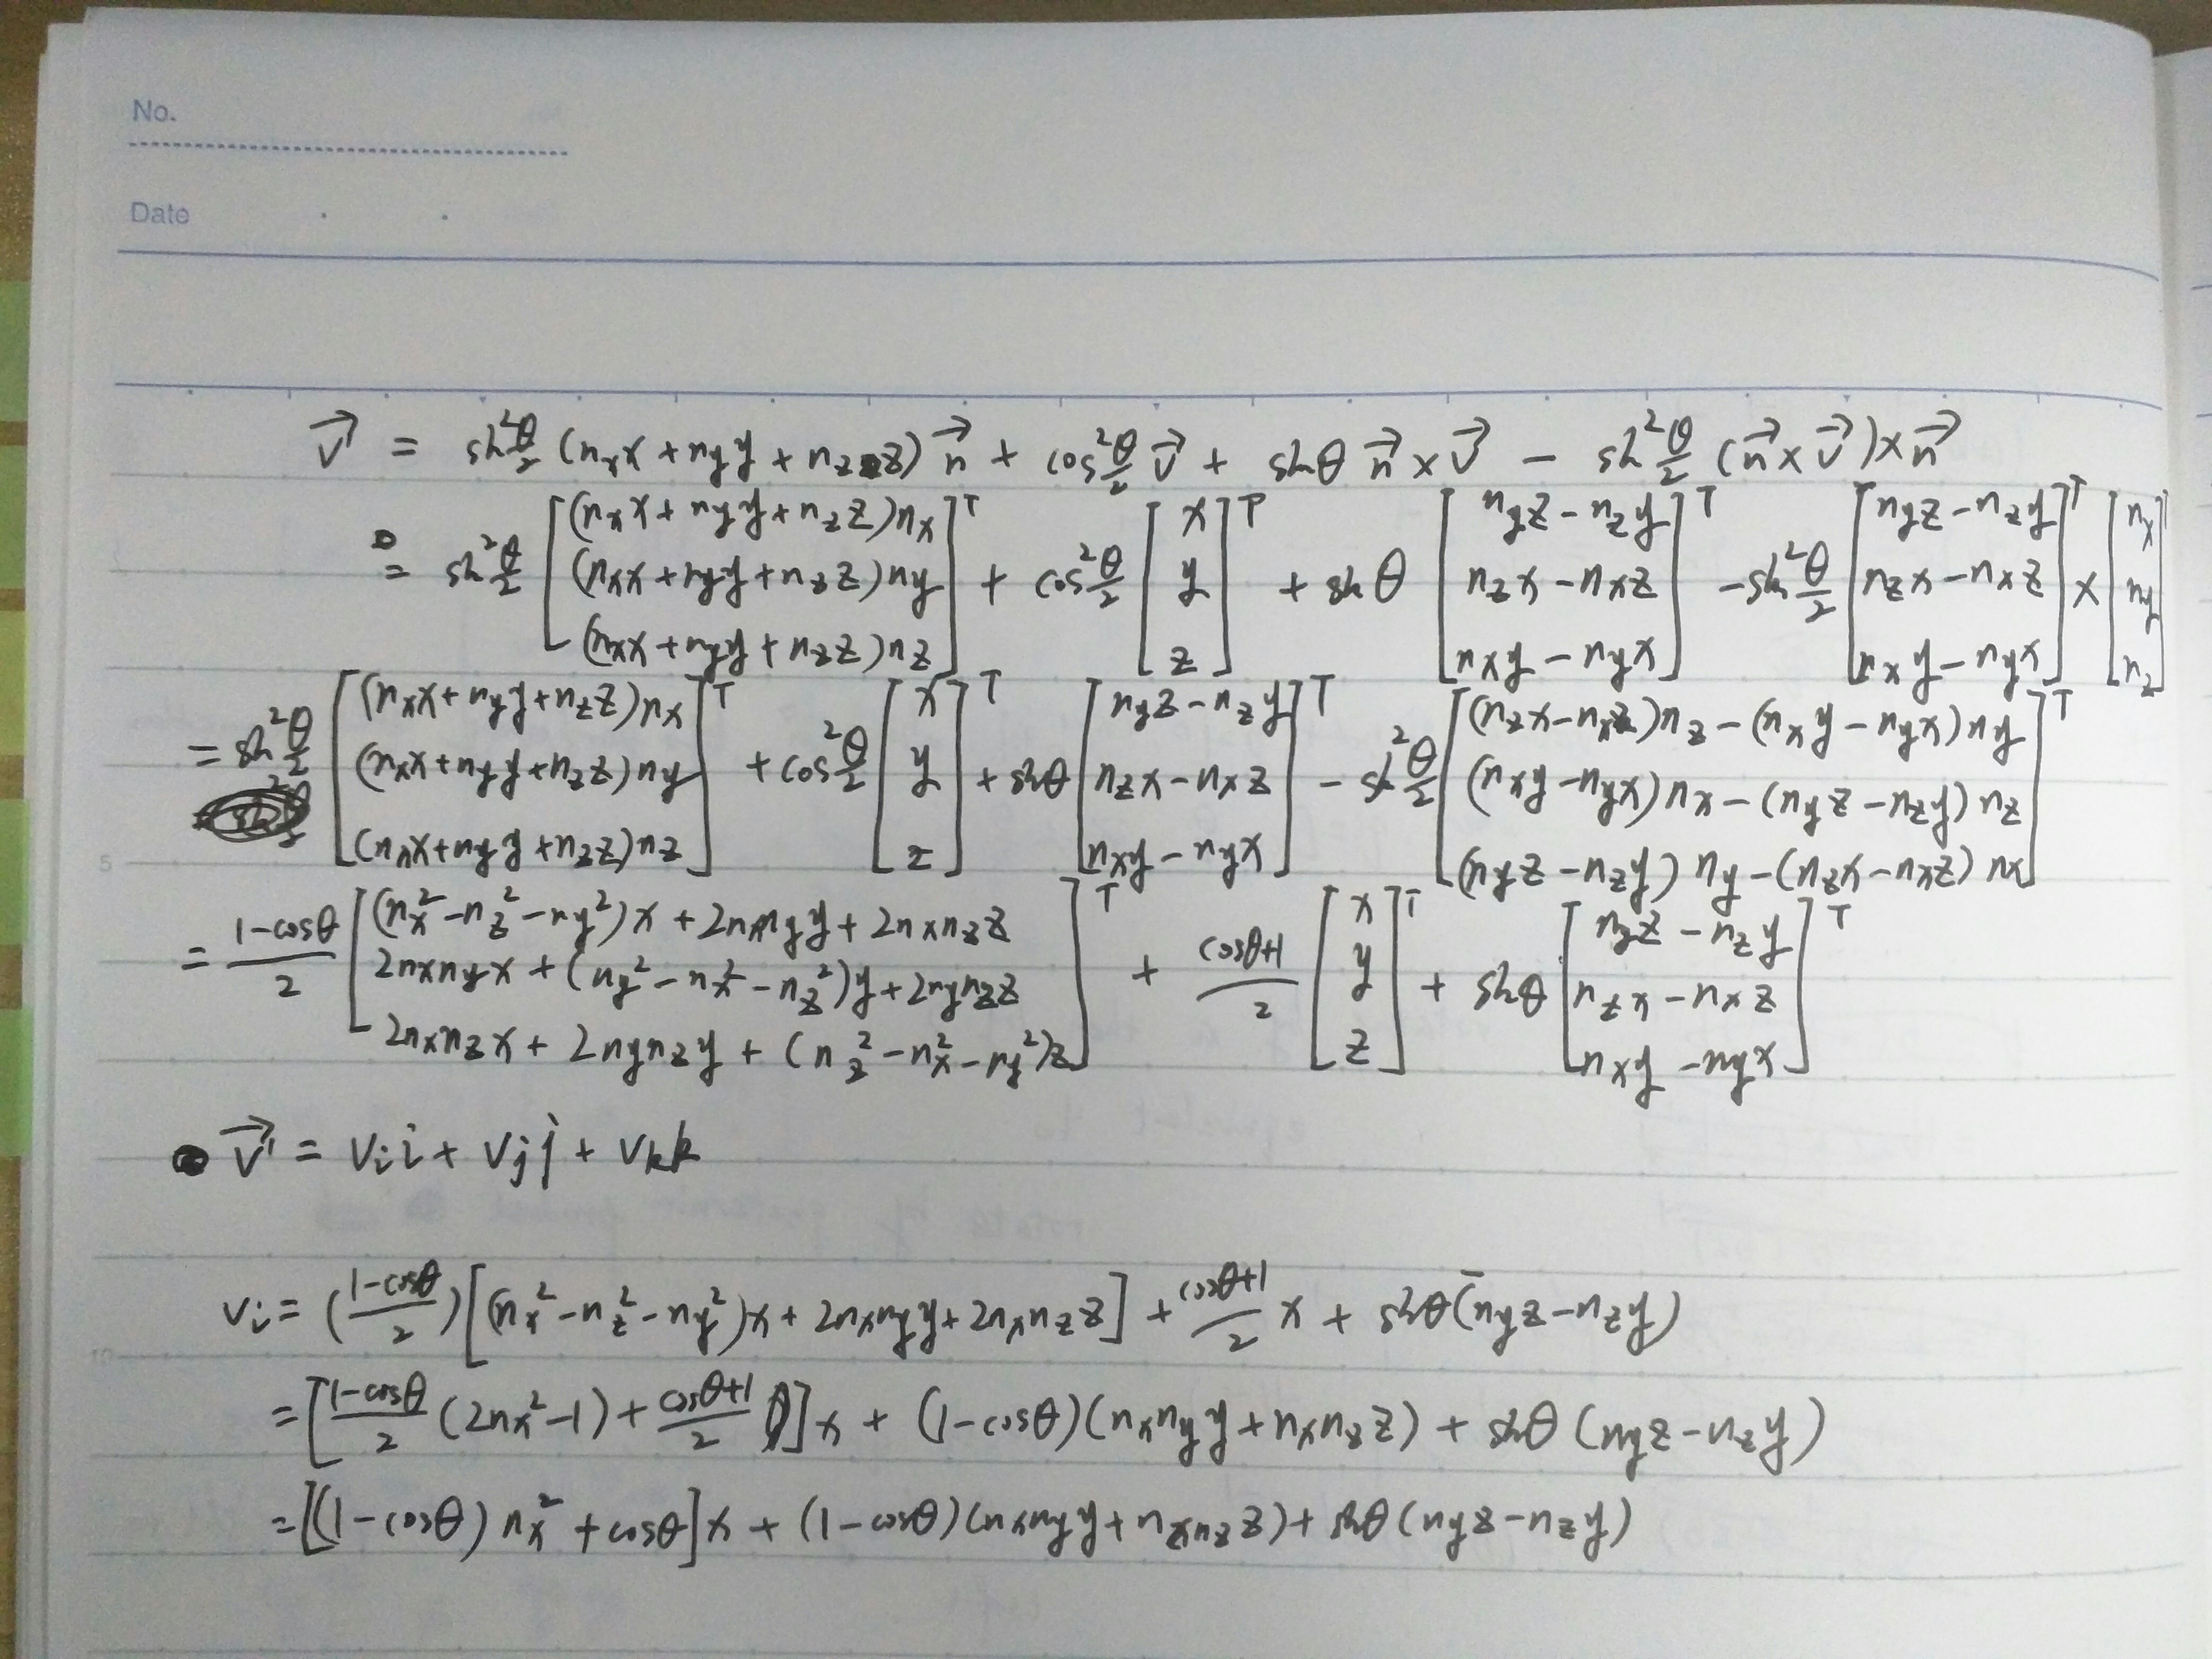 No.
Date
$\vec{v'} = \sin^2\frac{\theta}{2} (n_x x + n_y y + n_z z) \vec{n} + \cos^2\frac{\theta}{2} \vec{v} + \sin\theta \, \vec{n} \times \vec{v} - \sin^2\frac{\theta}{2} (\vec{n} \times \vec{v}) \times \vec{n}$
$= \sin^2\frac{\theta}{2} \begin{bmatrix} (n_x x + n_y y + n_z z) n_x \\ (n_x x + n_y y + n_z z) n_y \\ (n_x x + n_y y + n_z z) n_z \end{bmatrix}^T + \cos^2\frac{\theta}{2} \begin{bmatrix} x \\ y \\ z \end{bmatrix}^T + \sin\theta \begin{bmatrix} n_y z - n_z y \\ n_z x - n_x z \\ n_x y - n_y x \end{bmatrix}^T - \sin^2\frac{\theta}{2} \begin{bmatrix} n_y z - n_z y \\ n_z x - n_x z \\ n_x y - n_y x \end{bmatrix}^T \times \begin{bmatrix} n_x \\ n_y \\ n_z \end{bmatrix}^T$
$= \sin^2\frac{\theta}{2} \begin{bmatrix} (n_x x + n_y y + n_z z) n_x \\ (n_x x + n_y y + n_z z) n_y \\ (n_x x + n_y y + n_z z) n_z \end{bmatrix}^T + \cos^2\frac{\theta}{2} \begin{bmatrix} x \\ y \\ z \end{bmatrix}^T + \sin\theta \begin{bmatrix} n_y z - n_z y \\ n_z x - n_x z \\ n_x y - n_y x \end{bmatrix}^T - \sin^2\frac{\theta}{2} \begin{bmatrix} (n_z x - n_x z) n_z - (n_x y - n_y x) n_y \\ (n_x y - n_y x) n_x - (n_y z - n_z y) n_z \\ (n_y z - n_z y) n_y - (n_z x - n_x z) n_x \end{bmatrix}^T$
5
$= \frac{1-\cos\theta}{2} \begin{bmatrix} (n_x^2 - n_z^2 - n_y^2) x + 2 n_x n_y y + 2 n_x n_z z \\ 2 n_x n_y x + (n_y^2 - n_x^2 - n_z^2) y + 2 n_y n_z z \\ 2 n_x n_z x + 2 n_y n_z y + (n_z^2 - n_x^2 - n_y^2) z \end{bmatrix}^T + \frac{\cos\theta+1}{2} \begin{bmatrix} x \\ y \\ z \end{bmatrix}^T + \sin\theta \begin{bmatrix} n_y z - n_z y \\ n_z x - n_x z \\ n_x y - n_y x \end{bmatrix}^T$
$\vec{v'} = v_i i + v_j j + v_k k$
$v_i = (\frac{1-\cos\theta}{2}) [(n_x^2 - n_z^2 - n_y^2) x + 2 n_x n_y y + 2 n_x n_z z] + \frac{\cos\theta+1}{2} x + \sin\theta (n_y z - n_z y)$
10
$= [\frac{1-\cos\theta}{2} (2 n_x^2 - 1) + \frac{\cos\theta+1}{2}] x + (1-\cos\theta)(n_x n_y y + n_x n_z z) + \sin\theta (n_y z - n_z y)$
$= [(1-\cos\theta) n_x^2 + \cos\theta] x + (1-\cos\theta)(n_x n_y y + n_x n_z z) + \sin\theta (n_y z - n_z y)$